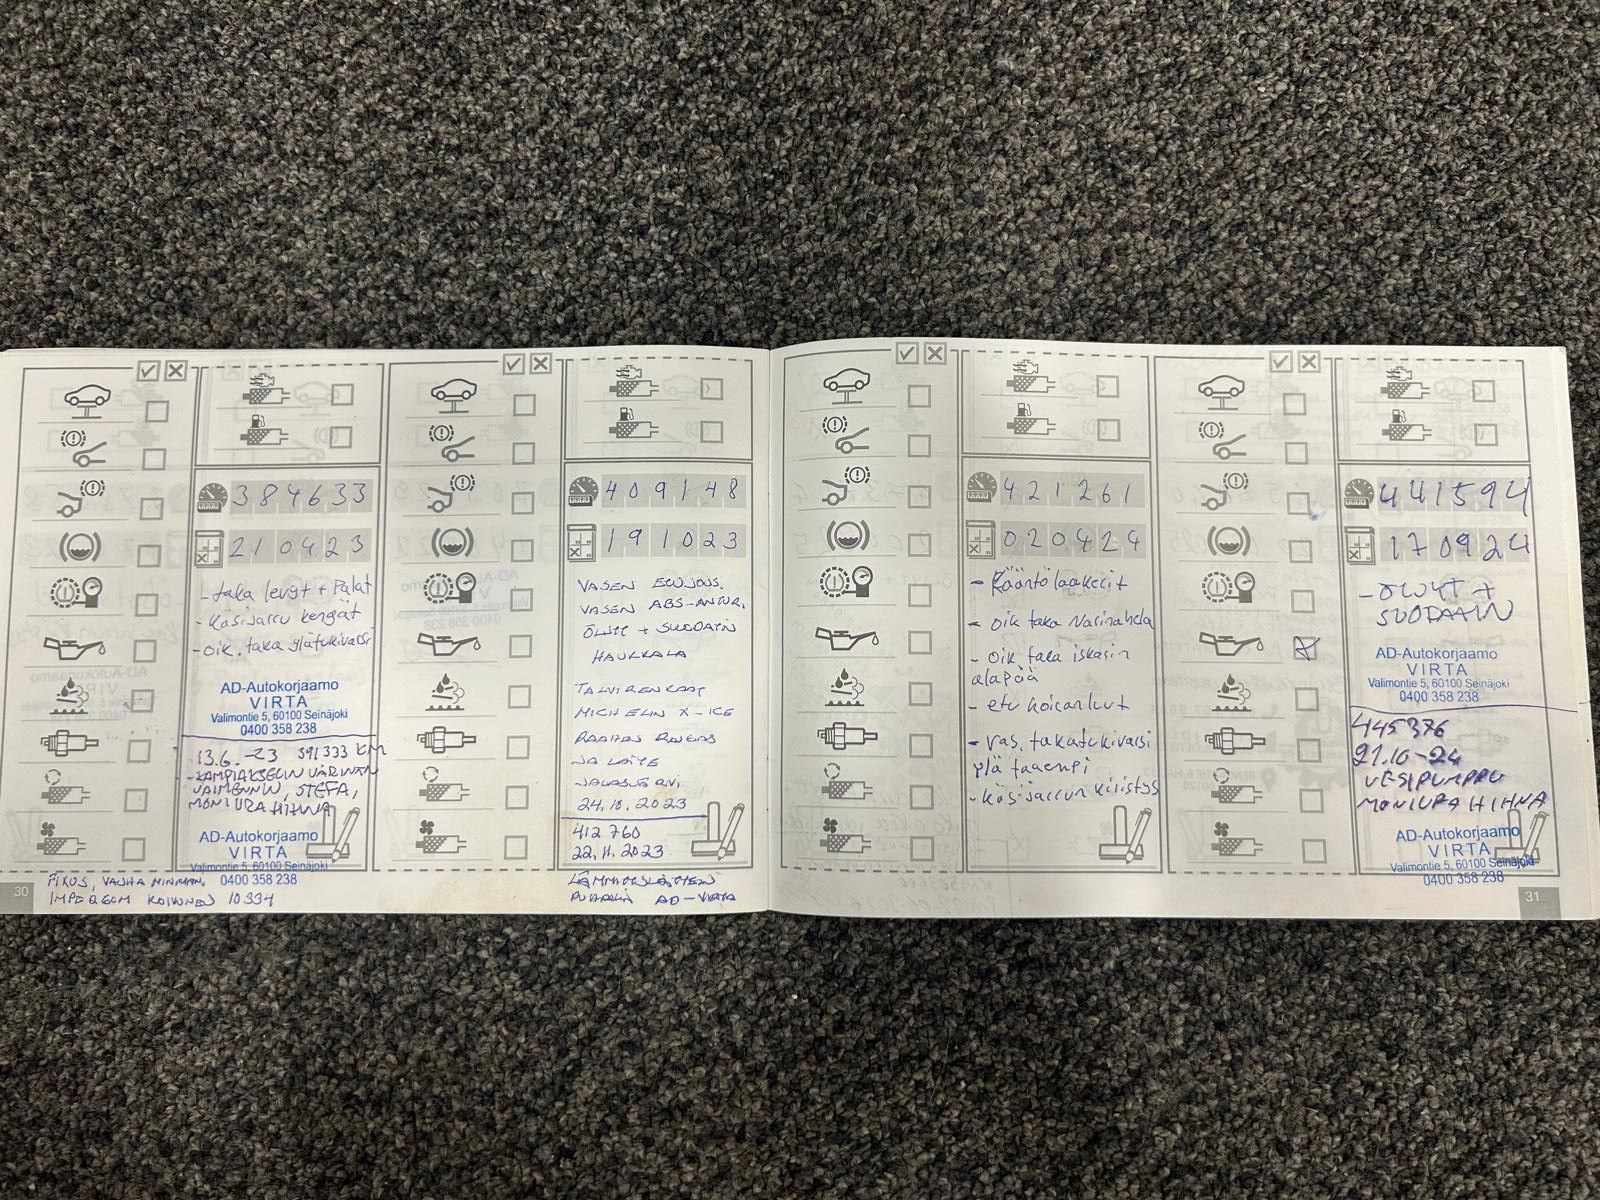 384633
210423
- taka levyt + Palat
- Käsijarru kengät
- oik. taka ylätukivarsi
AD-Autokorjaamo
VIRTA
Valimontie 5, 60100 Seinäjoki
0400 358 238
13.6.-23 391333 KM
- KAMPIAKSELIN VÄRINÄN
VAIMENNIN, STEFA,
MONIURAHIHNA
AD-Autokorjaamo
VIRTA
Valimontie 5, 60100 Seinäjoki
0400 358 238
30
409148
191023
VASEN ETUJOUS.
VASEN ABS-ANTUR.
ÖLJYT + SUODATIN
HAUKKALA
TALVIRENKAAT
MICHELIN X-ICE
JA LAITE
JALASJÄRVI
24.10.2023
412760
22.11.2023
AD-VIRTA
421261
020424
- Kääntölaakerit
- oik taka Navinahela
- oik taka iskarin
alapää
- etu koiranluut
- vas. takatukivarsi
ylä taaempi
- Käsijarrun kiristys
441594
170924
- ÖLJYT +
SUODATIN
AD-Autokorjaamo
VIRTA
Valimontie 5, 60100 Seinäjoki
0400 358 238
445376
21.10-24
VESIPUMPPU
MONIURAHIHNA
AD-Autokorjaamo
VIRTA
Valimontie 5, 60100 Seinäjoki
0400 358 238
31